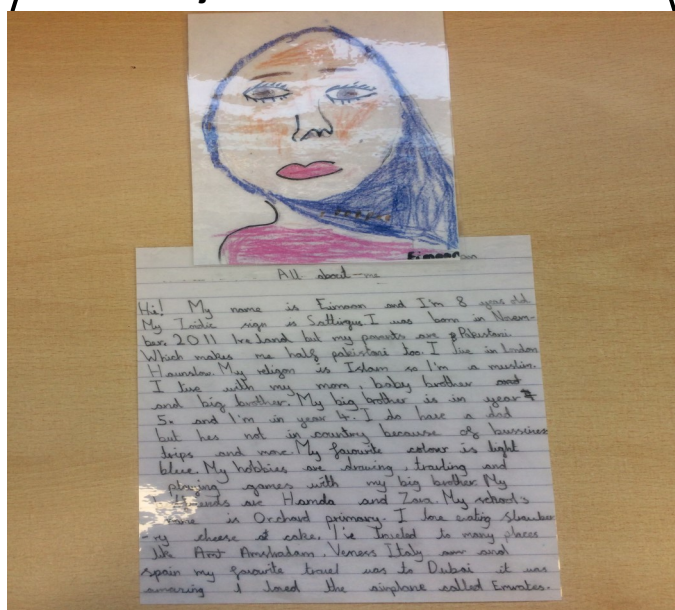 Eimaan
All about me
Hie! My name is Eimaan and I'm 8 years old.
My Zodic sign is Sattirgus I was born in Novem-
ber. 2011 Ireland but my parents are Pakistani.
Which makes me half pakistani too. I live in London
Hounslow. My religon is Islam so I'm a muslim.
I live with my mom, baby brother
and big brother. My big brother is in year
5. and I'm in year 4. I do have a dad
but hes not in country because of bussines
trips and more. My favourite colour is light
blue. My hobbies are drawing, travling and
playing games with my big brother. My
friends are Hamda and Zara. My school's
name is Orchard primary. I love eating strawber
-ry cheese cake. I've traveled to many places
like Amshadam, Veness Italy and
spain my favourite travel was to Dubai it was
amazing I loved the airplane called Emirates.